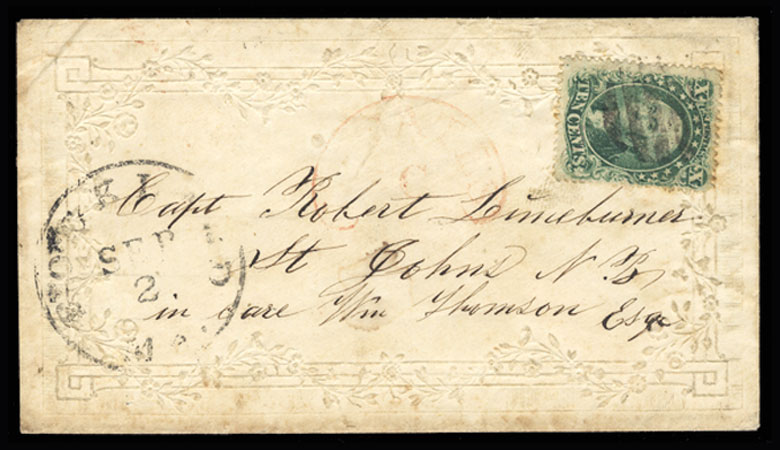 TEN CENTS
X
X
SEP
2
Capt Robert Limeburner
St Johns N B
in care Wm Thomson Esqr